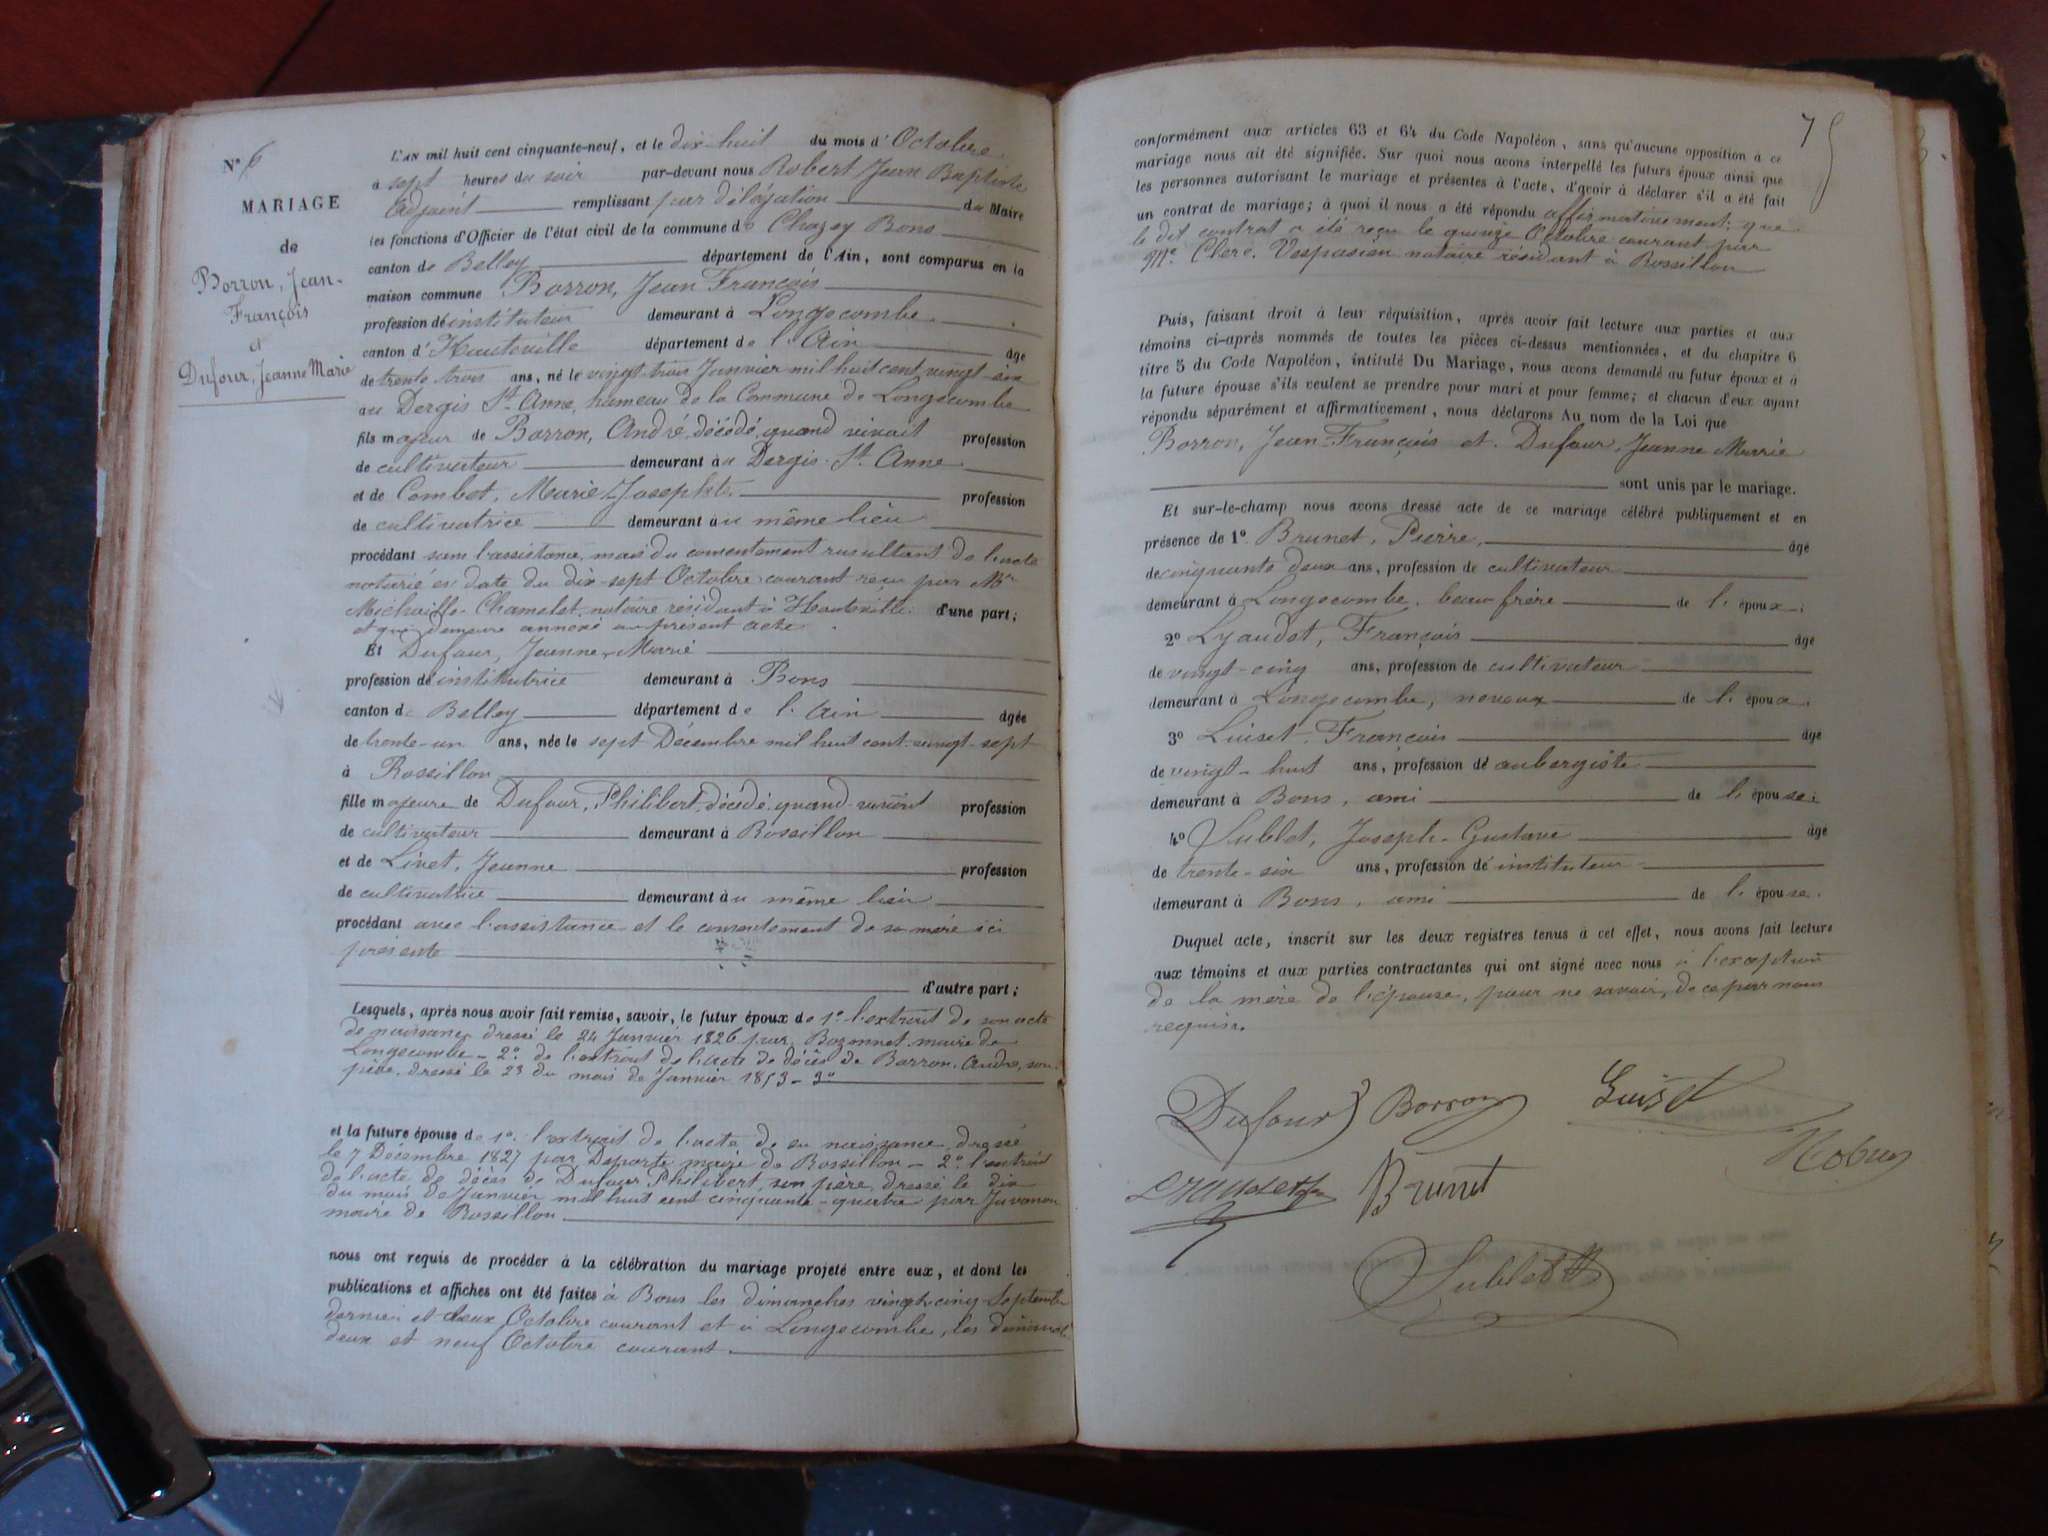 N° 6
MARIAGE
de
Borron, Jean-
François
et
Dufour, Jeanne Marie
L'AN mil huit cent cinquante-neuf, et le dix-huit du mois d'Octobre
à sept heures du soir par-devant nous Robert Jean Baptiste
Adjoint remplissant par délégation du Maire
les fonctions d'Officier de l'état civil de la commune de Chazey Bons
canton de Belley département de l'Ain, sont comparus en la
maison commune Borron, Jean François
profession de instituteur demeurant à Longecombe
canton d'Hauteville département de l'Ain âgé
de trente trois ans, né le vingt-trois Janvier mil huit cent vingt-six
au Dergis St. Anne, hameau de la Commune de Longecombe
fils majeur de Borron, André, décédé, quand vivait profession
de cultivateur demeurant au Dergis St. Anne
et de Combet, Marie Josephte profession
de cultivatrice demeurant au même lieu
procédant sans l'assistance, mais du consentement resultant de l'acte
notarié en date du dix-sept Octobre courant reçu par Mr
Michaille-Chamelet, notaire résidant à Hauteville d'une part;
et qui demeure annexé au présent acte
Et Dufour, Jeanne-Marie
profession de institutrice demeurant à Bons
canton de Belley département de l'Ain âgée
de trente-un ans, née le sept Décembre mil huit cent-vingt-sept
à Rossillon
fille majeure de Dufour, Philibert, décédé, quand vivait profession
de cultivateur demeurant à Rossillon
et de Livet, Jeanne profession
de cultivatrice demeurant au même lieu
procédant avec l'assistance et le consentement de sa mère ici
présente
d'autre part;
Lesquels, après nous avoir fait remise, savoir, le futur époux de 1°. l'extrait de son acte
de naissance dressé le 24 Janvier 1826 par Bozonnet maire de
Longecombe - 2°. de l'extrait de l'acte de décès de Borron, André, son
père, dressé le 23 du mois de Janvier 1853 - 3°
et la future épouse de 1°. l'extrait de l'acte de sa naissance dressé
le 7 Décembre 1827 par Deporte, maire de Rossillon - 2°. l'extrait
de l'acte de décès de Dufour Philibert, son père, dressé le dix
du mois de Janvier mil huit cent cinquante-quatre par Juvanon
maire de Rossillon
nous ont requis de procéder à la célébration du mariage projeté entre eux, et dont les
publications et affiches ont été faites à Bons les dimanches vingt-cinq Septembre
dernier et deux Octobre courant et à Longecombe, les dimanches
deux et neuf Octobre courant
75
conformément aux articles 63 et 64 du Code Napoléon, sans qu'aucune opposition à ce
mariage nous ait été signifiée. Sur quoi nous avons interpellé les futurs époux ainsi que
les personnes autorisant le mariage et présentes à l'acte, d'avoir à déclarer s'il a été fait
un contrat de mariage; à quoi il nous a été répondu affirmativement: que
le dit contrat a été reçu le quinze Octobre courant par
Me. Clerc, Vespasien notaire résidant à Rossillon
Puis, faisant droit à leur réquisition, après avoir fait lecture aux parties et aux
témoins ci-après nommés de toutes les pièces ci-dessus mentionnées, et du chapitre 6
titre 5 du Code Napoléon, intitulé Du Mariage, nous avons demandé au futur époux et à
la future épouse s'ils veulent se prendre pour mari et pour femme; et chacun d'eux ayant
répondu séparément et affirmativement, nous déclarons Au nom de la Loi que
Borron, Jean-François et Dufour, Jeanne Marie
sont unis par le mariage.
Et sur-le-champ nous avons dressé acte de ce mariage célébré publiquement et en
présence de 1°. Brunet, Pierre, âgé
de cinquante deux ans, profession de cultivateur
demeurant à Longecombe, beau frère de l'époux;
2° Lyaudet, François âgé
de vingt-cinq ans, profession de cultivateur
demeurant à Longecombe, neveux de l'époux;
3° Luiset, François âgé
de vingt-huit ans, profession de aubergiste
demeurant à Bons, ami de l'épouse;
4° Sublet, Joseph-Gustave âgé
de trente-six ans, profession de instituteur
demeurant à Bons, ami de l'épouse.
Duquel acte, inscrit sur les deux registres tenus à cet effet, nous avons fait lecture
aux témoins et aux parties contractantes qui ont signé avec nous à l'exception
de la mère de l'épouse, pour ne savoir, de ce par nous
requise.
Dufour Borron Luiset
Lyaudet Brunet
Sublet